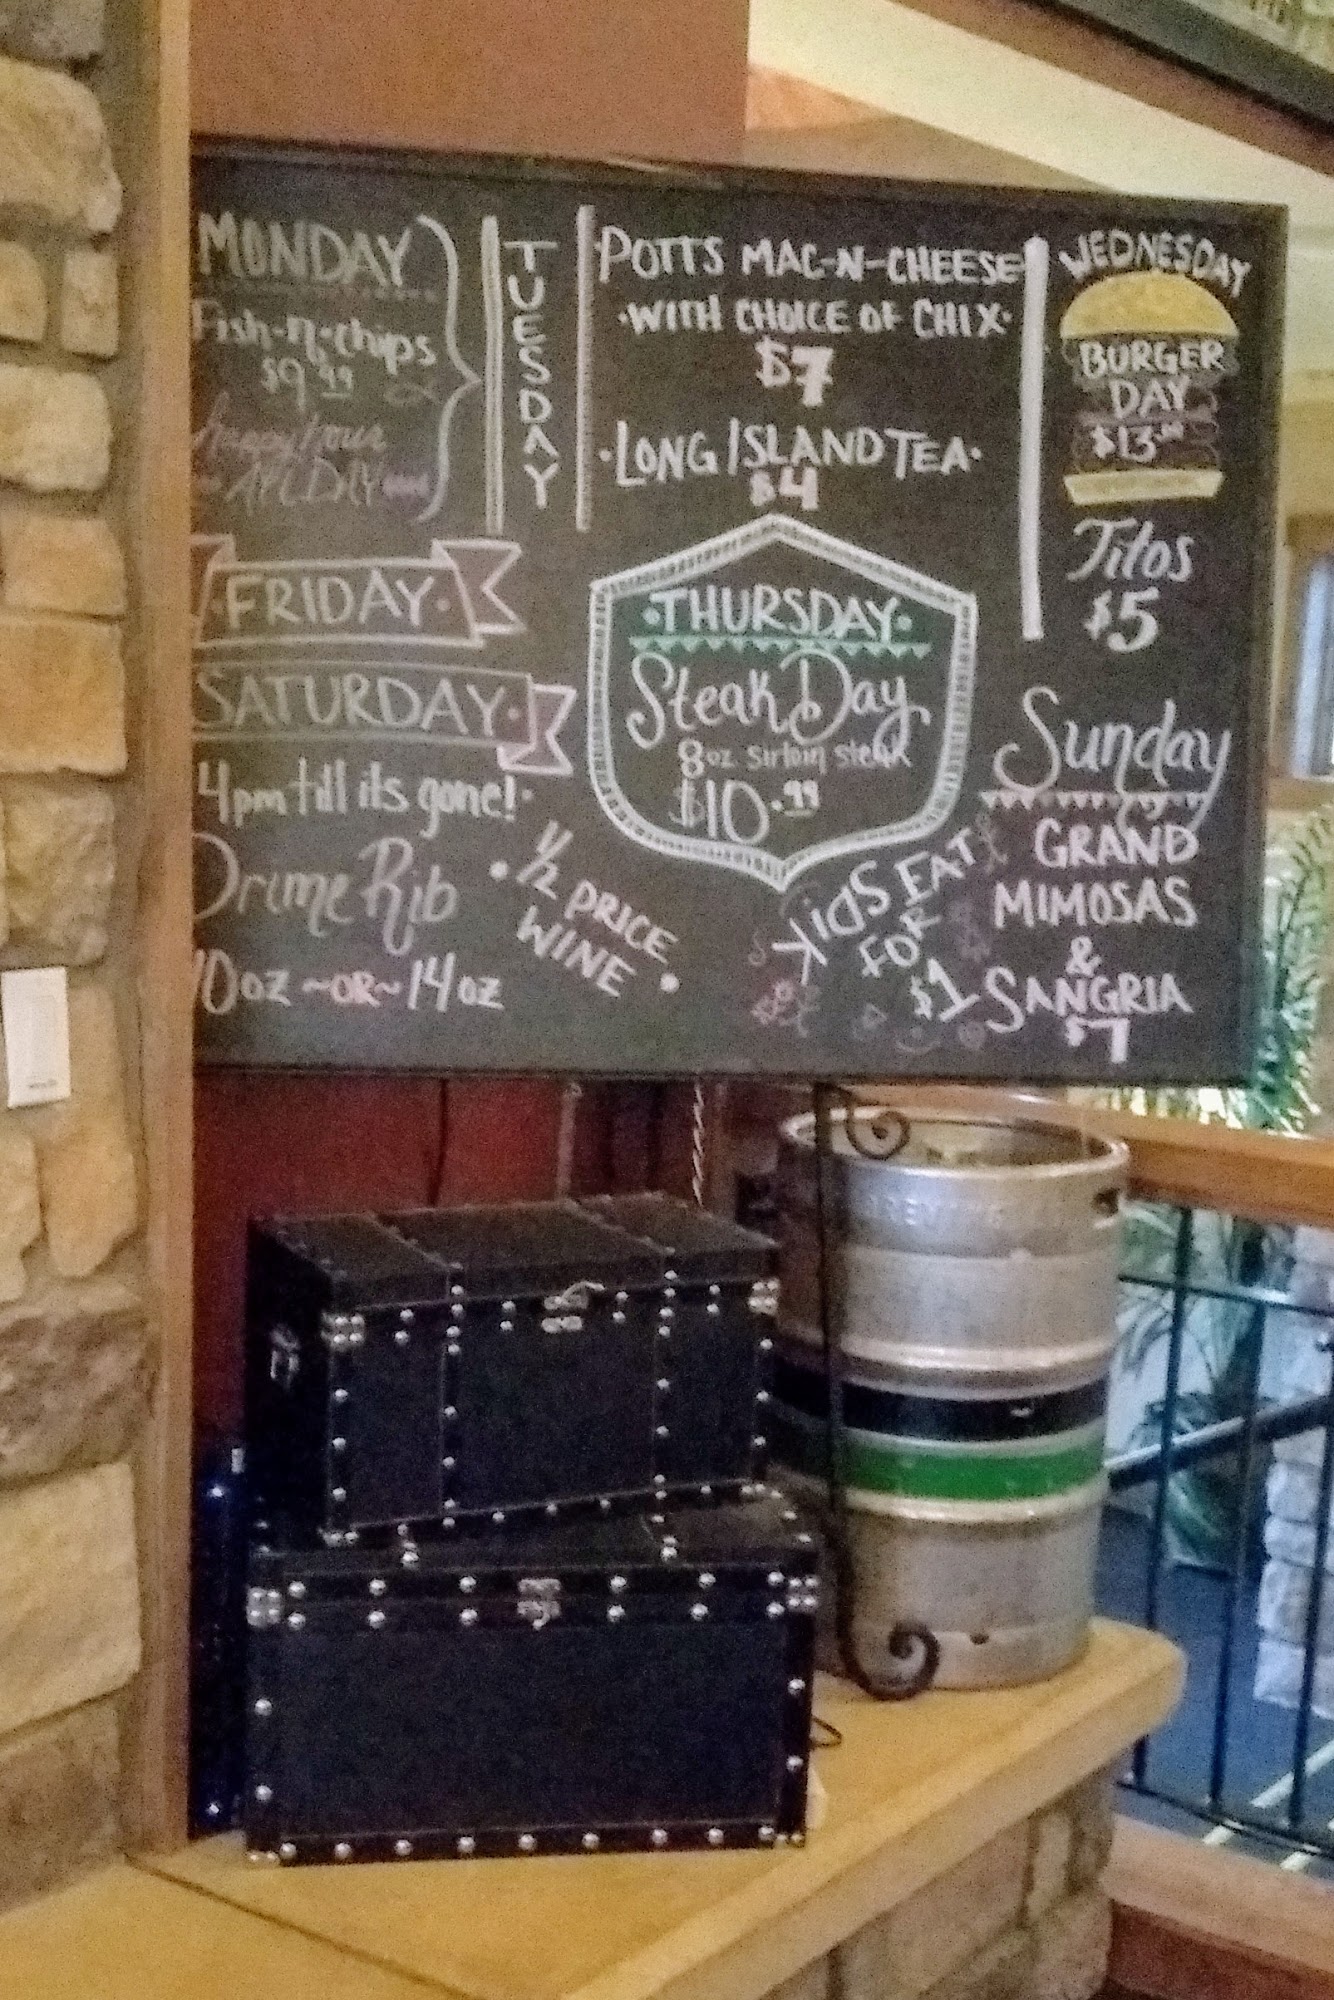 MONDAY
Fish-n-chips
$9.99
happy hour
ALL DAY
TUESDAY
POTTS MAC-N-CHEESE
·WITH CHOICE OF CHIX·
$7
·LONG ISLAND TEA·
$4
WEDNESDAY
BURGER
DAY
$13.00
Titos
$5
·FRIDAY·
SATURDAY·
4pm till its gone!·
Prime Rib
10oz ~OR~ 14oz
·THURSDAY·
Steak Day
8oz sirloin steak
$10.99
·1/2 PRICE
WINE·
KiDS EAT
FOR
$1
Sunday
GRAND
MIMOSAS
&
SANGRIA
$7